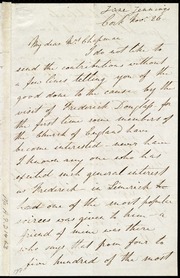 Jane Jennings
Cork Nov. 26.
My dear Mrs Chapman
I do not like to
send the contributions without
a few lines telling you of the
good done to the cause by the
visit of Frederick Douglass for
the first time some members of
the church of England have
become interested - never have
I known any one who has
excited such general interest
as Frederick - in Limerick he
had one of the most popular
soirees was given to him - a
friend of mine was there
who says that from four to
five hundred of the most